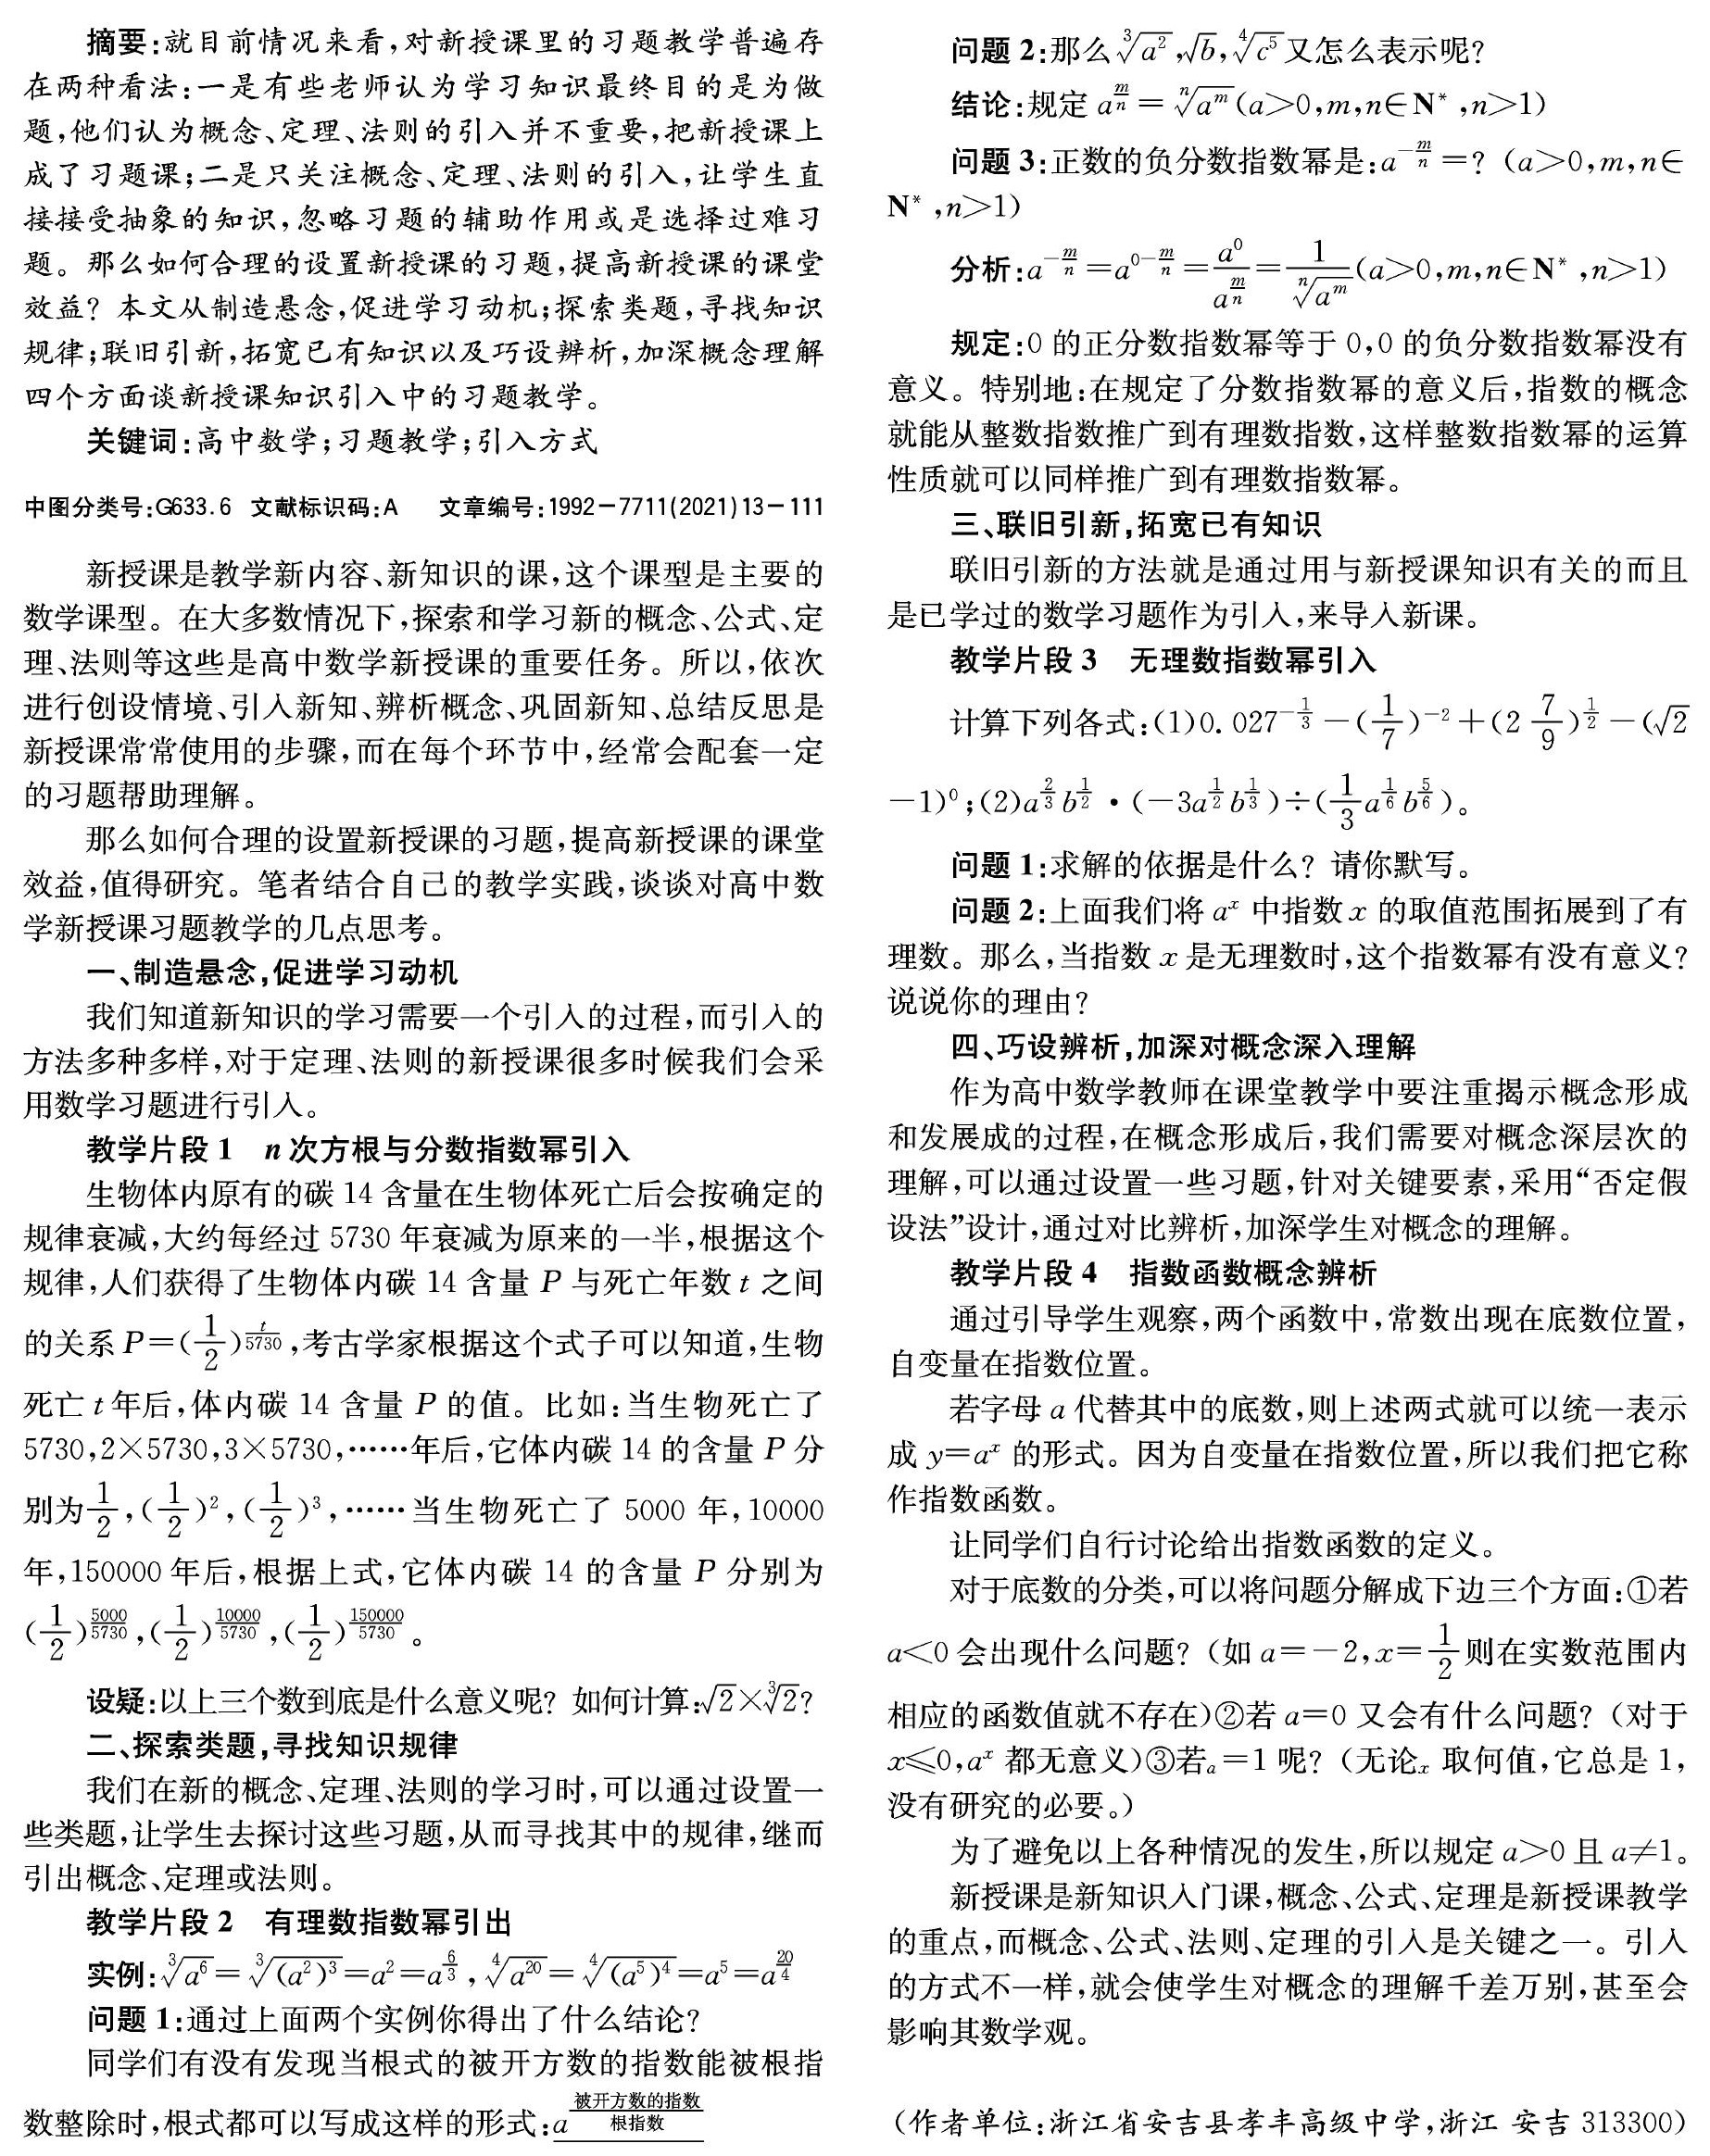 摘要:就目前情况来看,对新授课里的习题教学普遍存
在两种看法:一是有些老师认为学习知识最终目的是为做
题,他们认为概念、定理、法则的引入并不重要,把新授课上
成了习题课;二是只关注概念、定理、法则的引入,让学生直
接接受抽象的知识,忽略习题的辅助作用或是选择过难习
题。那么如何合理的设置新授课的习题,提高新授课的课堂
效益?本文从制造悬念,促进学习动机;探索类题,寻找知识
规律;联旧引新,拓宽已有知识以及巧设辨析,加深概念理解
四个方面谈新授课知识引入中的习题教学。
关键词:高中数学;习题教学;引入方式
中图分类号:G633.6 文献标识码:A 文章编号:1992-7711(2021)13-111
新授课是教学新内容、新知识的课,这个课型是主要的
数学课型。在大多数情况下,探索和学习新的概念、公式、定
理、法则等这些是高中数学新授课的重要任务。所以,依次
进行创设情境、引入新知、辨析概念、巩固新知、总结反思是
新授课常常使用的步骤,而在每个环节中,经常会配套一定
的习题帮助理解。
那么如何合理的设置新授课的习题,提高新授课的课堂
效益,值得研究。笔者结合自己的教学实践,谈谈对高中数
学新授课习题教学的几点思考。
一、制造悬念,促进学习动机
我们知道新知识的学习需要一个引入的过程,而引入的
方法多种多样,对于定理、法则的新授课很多时候我们会采
用数学习题进行引入。
教学片段1 n次方根与分数指数幂引入
生物体内原有的碳14含量在生物体死亡后会按确定的
规律衰减,大约每经过5730年衰减为原来的一半,根据这个
规律,人们获得了生物体内碳14含量P与死亡年数t之间
的关系 $P=(\frac{1}{2})^{\frac{t}{5730}}$,考古学家根据这个式子可以知道,生物
死亡t年后,体内碳14含量P的值。比如:当生物死亡了
5730,2×5730,3×5730,……年后,它体内碳14的含量P分
别为 $\frac{1}{2},(\frac{1}{2})^2,(\frac{1}{2})^3$,……当生物死亡了5000年,10000
年,150000年后,根据上式,它体内碳14的含量P分别为
$(\frac{1}{2})^{\frac{5000}{5730}},(\frac{1}{2})^{\frac{10000}{5730}},(\frac{1}{2})^{\frac{150000}{5730}}$。
设疑:以上三个数到底是什么意义呢?如何计算:$\sqrt{2}×\sqrt[3]{2}$?
二、探索类题,寻找知识规律
我们在新的概念、定理、法则的学习时,可以通过设置一
些类题,让学生去探讨这些习题,从而寻找其中的规律,继而
引出概念、定理或法则。
教学片段2 有理数指数幂引出
实例:$\sqrt[3]{a^6}=\sqrt[3]{(a^2)^3}=a^2=a^{\frac{6}{3}},\sqrt[4]{a^{20}}=\sqrt[4]{(a^5)^4}=a^5=a^{\frac{20}{4}}$
问题1:通过上面两个实例你得出了什么结论?
同学们有没有发现当根式的被开方数的指数能被根指
数整除时,根式都可以写成这样的形式:$a^{\frac{被开方数的指数}{根指数}}$
问题2:那么 $\sqrt[3]{a^2},\sqrt{b},\sqrt[4]{c^5}$ 又怎么表示呢?
结论:规定 $a^{\frac{m}{n}}=\sqrt[n]{a^m}(a>0,m,n∈N^*,n>1)$
问题3:正数的负分数指数幂是:$a^{-\frac{m}{n}}$=?(a>0,m,n∈
N*,n>1)
分析:$a^{-\frac{m}{n}}=a^{0-\frac{m}{n}}=\frac{a^0}{a^{\frac{m}{n}}}=\frac{1}{\sqrt[n]{a^m}}(a>0,m,n∈N^*,n>1)$
规定:0的正分数指数幂等于0,0的负分数指数幂没有
意义。特别地:在规定了分数指数幂的意义后,指数的概念
就能从整数指数推广到有理数指数,这样整数指数幂的运算
性质就可以同样推广到有理数指数幂。
三、联旧引新,拓宽已有知识
联旧引新的方法就是通过用与新授课知识有关的而且
是已学过的数学习题作为引入,来导入新课。
教学片段3 无理数指数幂引入
计算下列各式:(1)$0.027^{-\frac{1}{3}}-(\frac{1}{7})^{-2}+(2\frac{7}{9})^{\frac{1}{2}}-(\sqrt{2}$
$-1)^0$;(2)$a^{\frac{2}{3}}b^{\frac{1}{2}}·(-3a^{\frac{1}{2}}b^{\frac{1}{3}})÷(\frac{1}{3}a^{\frac{1}{6}}b^{\frac{5}{6}})$。
问题1:求解的依据是什么?请你默写。
问题2:上面我们将 $a^x$ 中指数x的取值范围拓展到了有
理数。那么,当指数x是无理数时,这个指数幂有没有意义?
说说你的理由?
四、巧设辨析,加深对概念深入理解
作为高中数学教师在课堂教学中要注重揭示概念形成
和发展成的过程,在概念形成后,我们需要对概念深层次的
理解,可以通过设置一些习题,针对关键要素,采用“否定假
设法”设计,通过对比辨析,加深学生对概念的理解。
教学片段4 指数函数概念辨析
通过引导学生观察,两个函数中,常数出现在底数位置,
自变量在指数位置。
若字母a代替其中的底数,则上述两式就可以统一表示
成 $y=a^x$ 的形式。因为自变量在指数位置,所以我们把它称
作指数函数。
让同学们自行讨论给出指数函数的定义。
对于底数的分类,可以将问题分解成下边三个方面:①若
a<0会出现什么问题?(如a=-2,$x=\frac{1}{2}$则在实数范围内
相应的函数值就不存在)②若a=0又会有什么问题?(对于
x≤0,$a^x$ 都无意义)③若a=1呢?(无论x取何值,它总是1,
没有研究的必要。)
为了避免以上各种情况的发生,所以规定a>0且a≠1。
新授课是新知识入门课,概念、公式、定理是新授课教学
的重点,而概念、公式、法则、定理的引入是关键之一。引入
的方式不一样,就会使学生对概念的理解千差万别,甚至会
影响其数学观。
(作者单位:浙江省安吉县孝丰高级中学,浙江 安吉 313300)